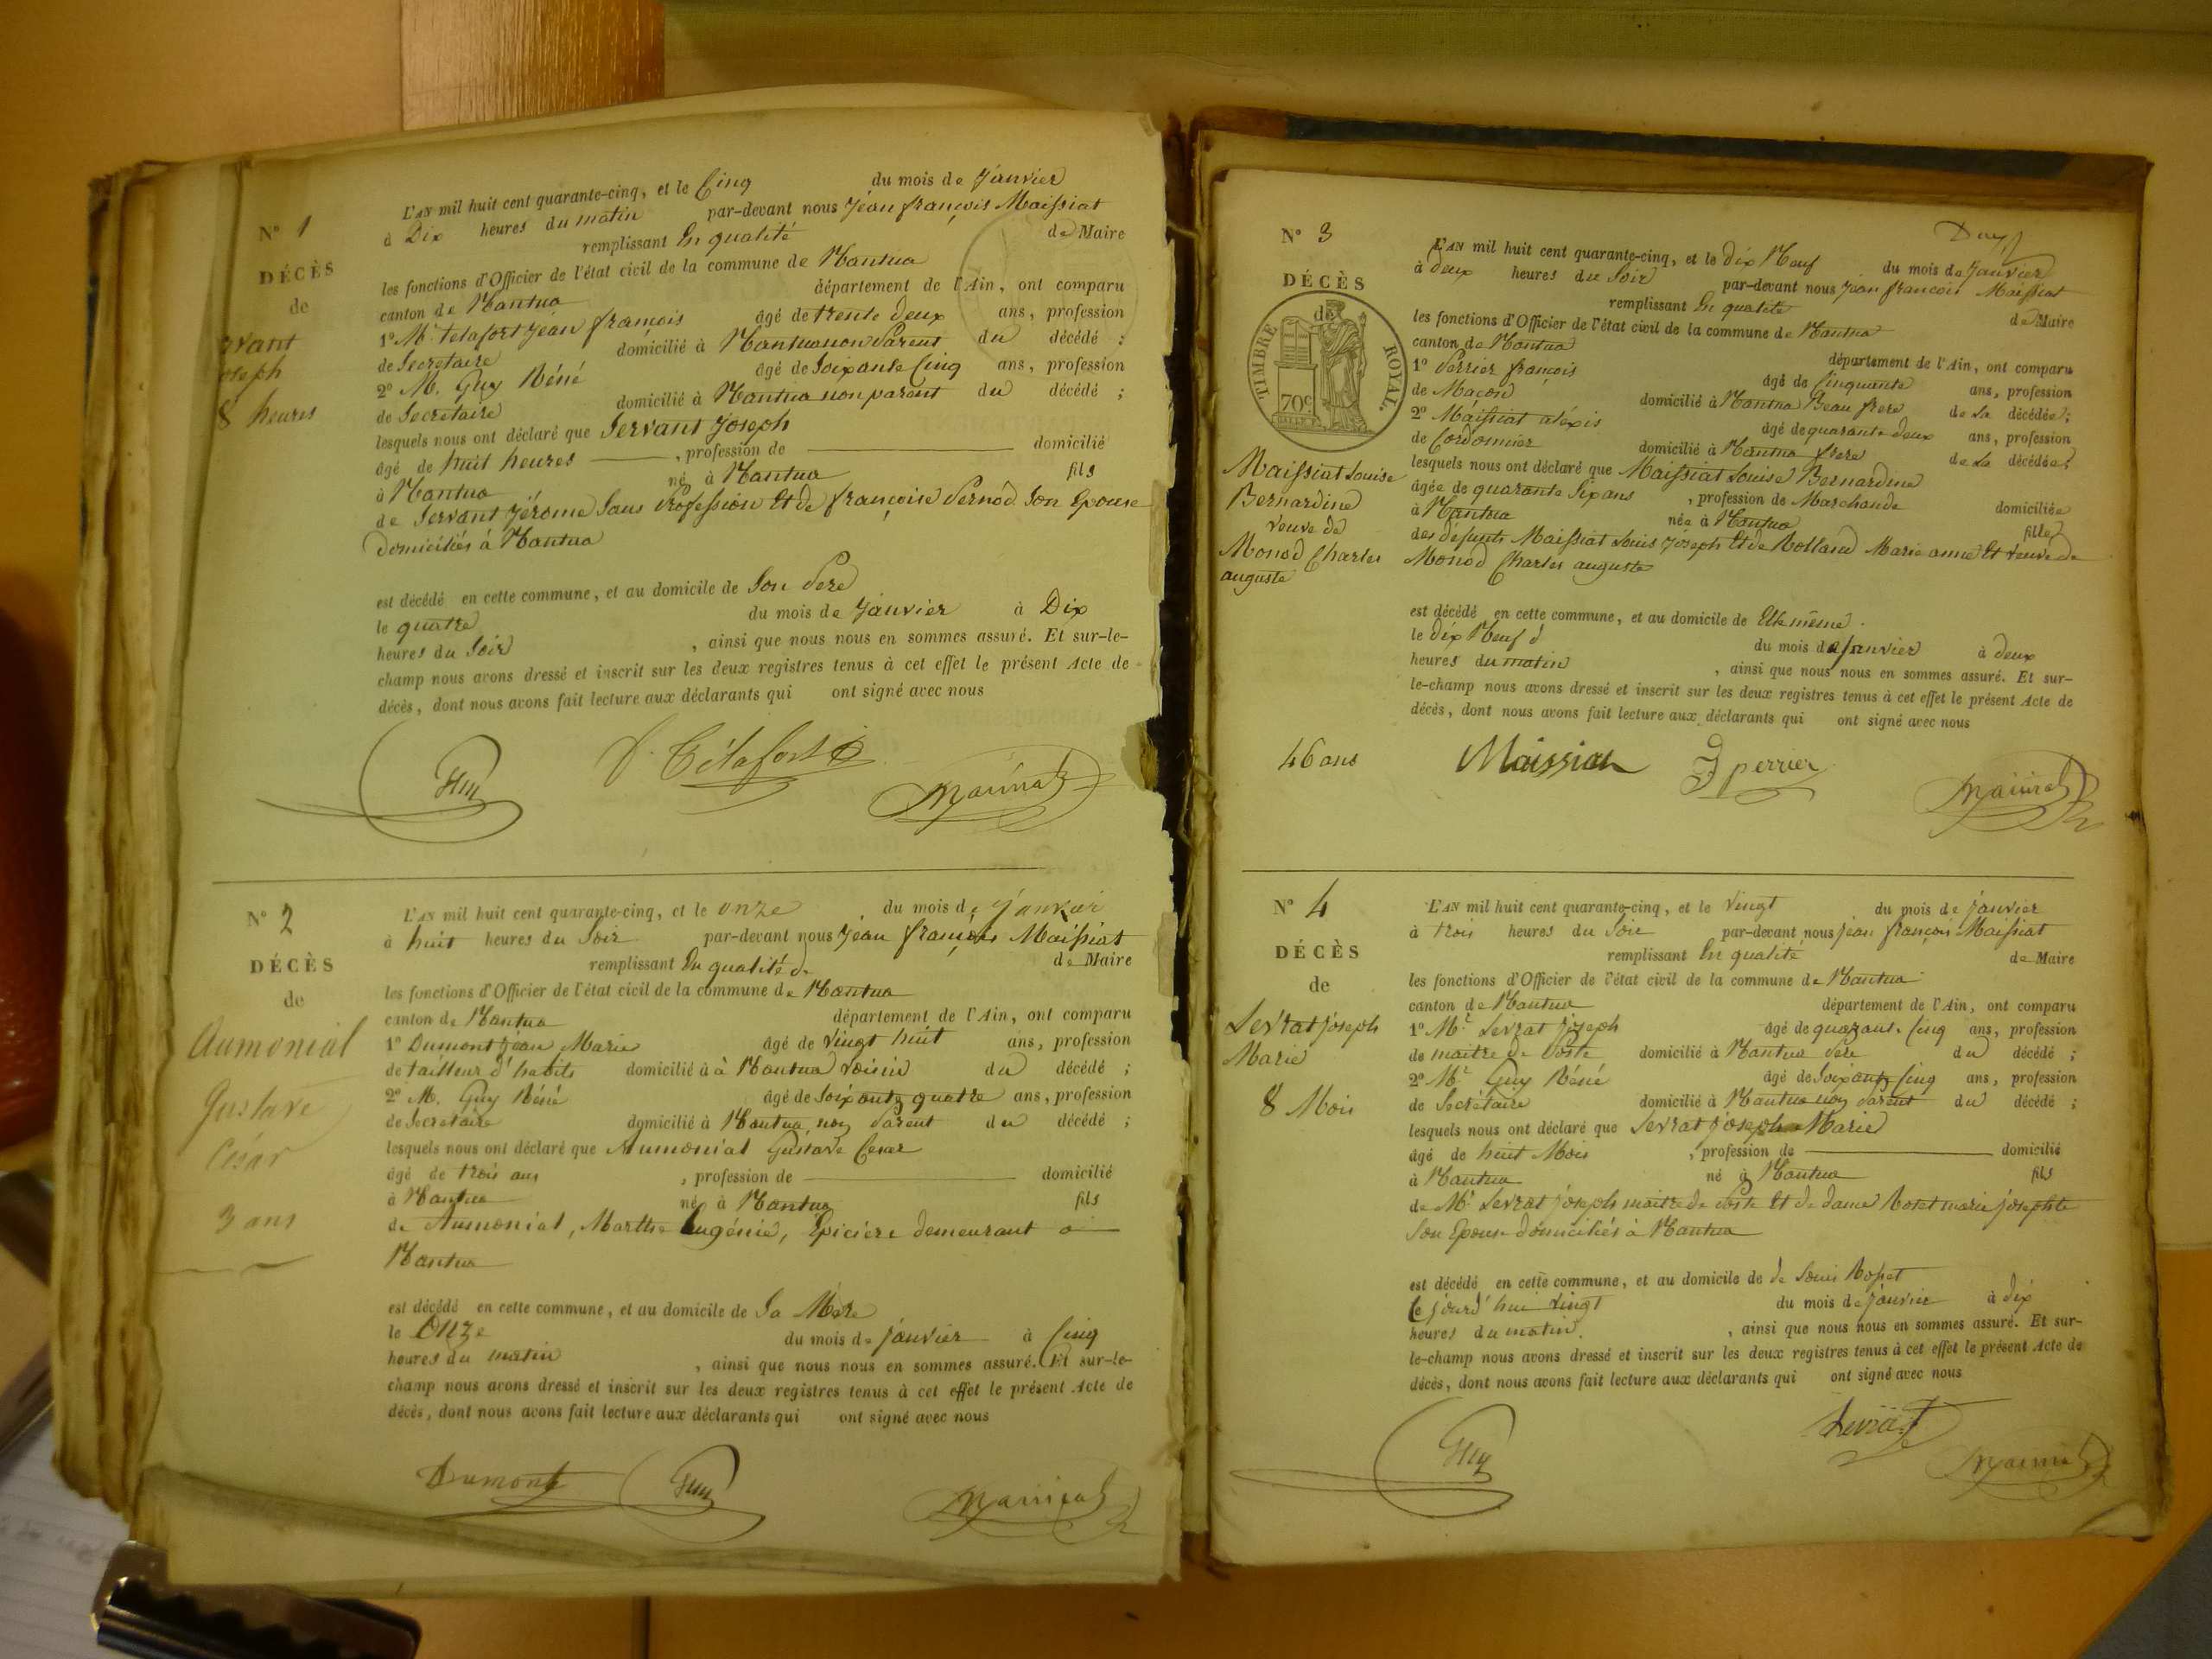 N° 1
DÉCÈS
de
rvant
oseph
8 heures
L'AN mil huit cent quarante-cinq, et le Cinq du mois de Janvier
à Dix heures du matin par-devant nous Jean françois Maissiat
remplissant En qualité de Maire
les fonctions d'Officier de l'état civil de la commune de Nantua
canton de Nantua département de l'Ain, ont comparu
1° Mr. Telafort Jean françois âgé de trente deux ans, profession
de Secretaire domicilié à Nantua non Parent du décédé ;
2° M. Guy Réné âgé de Soixante Cinq ans, profession
de Secretaire domicilié à Nantua non parent du décédé ;
lesquels nous ont déclaré que Servant Joseph
âgé de huit heures , profession de domicilié
à Nantua né à Nantua fils
de Servant Jérome Sans Profession Et de françoise Pernod Son Epouse
domiciliés à Nantua
est décédé en cette commune, et au domicile de Son Pere
le quatre du mois de Janvier à Dix
heures du Soir , ainsi que nous nous en sommes assuré. Et sur-le-
champ nous avons dressé et inscrit sur les deux registres tenus à cet effet le présent Acte de
décès, dont nous avons fait lecture aux déclarants qui ont signé avec nous
Guy Télafort
N° 2
DÉCÈS
de
Aumonial
Gustave
César
3 ans
L'AN mil huit cent quarante-cinq, et le onze du mois de Janvier
à huit heures du Soir par-devant nous Jean françois Maissiat
remplissant En qualité de de Maire
les fonctions d'Officier de l'état civil de la commune de Nantua
canton de Nantua département de l'Ain, ont comparu
1° Dumont Jean Marie âgé de Vingt huit ans, profession
de tailleur d'habits domicilié à à Nantua Voisin du décédé ;
2° M. Guy Réné âgé de Soixante quatre ans, profession
de Secretaire domicilié à Nantua non Parent du décédé ;
lesquels nous ont déclaré que Aumonial Gustave Cesar
âgé de trois ans , profession de domicilié
à Nantua né à Nantua fils
de Aumonial, Marthe Eugénie, Epicière demeurant à
Nantua
est décédé en cette commune, et au domicile de Sa Mère
le Onze du mois de Janvier à Cinq
heures du matin , ainsi que nous nous en sommes assuré. Et sur-le-
champ nous avons dressé et inscrit sur les deux registres tenus à cet effet le présent Acte de
décès, dont nous avons fait lecture aux déclarants qui ont signé avec nous
Dumont Guy
N° 3
DÉCÈS
de
TIMBRE ROYAL.
70c
Maissiat Louise
Bernardine
veuve de
Monod Charles
auguste
46 ans
L'AN mil huit cent quarante-cinq, et le dix Neuf du mois de Janvier
à deux heures du Soir par-devant nous Jean françois Maissiat
remplissant En qualité de Maire
les fonctions d'Officier de l'état civil de la commune de Nantua
canton de Nantua département de l'Ain, ont comparu
1° Perrier françois âgé de Cinquante ans, profession
de Maçon domicilié à Nantua Beau frere de La décédée ;
2° Maissiat aléxis âgé de quarante deux ans, profession
de Cordonnier domicilié à Nantua frere de La décédée ;
lesquels nous ont déclaré que Maissiat Louise Bernardine
âgée de quarante Six ans , profession de Marchande domiciliée
à Nantua née à Nantua fille
des défunts Maissiat Louis Joseph Et de Rolland Marie anne Et Veuve de
Monod Charles auguste
est décédé en cette commune, et au domicile de Elle même
le dix Neuf du mois de Janvier à deux
heures du matin , ainsi que nous nous en sommes assuré. Et sur-
le-champ nous avons dressé et inscrit sur les deux registres tenus à cet effet le présent Acte de
décès, dont nous avons fait lecture aux déclarants qui ont signé avec nous
Maissiat perrier
N° 4
DÉCÈS
de
Levrat Joseph
Marie
8 Mois
L'AN mil huit cent quarante-cinq, et le Vingt du mois de Janvier
à trois heures du Soir par-devant nous Jean françois Maissiat
remplissant En qualité de Maire
les fonctions d'Officier de l'état civil de la commune de Nantua
canton de Nantua département de l'Ain, ont comparu
1° Mr. Levrat Joseph âgé de quarante Cinq ans, profession
de maitre de Poste domicilié à Nantua Pere du décédé ;
2° Mr. Guy Réné âgé de Soixante Cinq ans, profession
de Secrétaire domicilié à Nantua non Parent du décédé ;
lesquels nous ont déclaré que Levrat Joseph Marie
âgé de huit Mois , profession de domicilié
à Nantua né à Nantua fils
de Mr. Levrat Joseph maitre de Poste Et de dame marie Josephte
Son Epouse domiciliés à Nantua
est décédé en cette commune, et au domicile de de Louis
Ce Jourd'hui Vingt du mois de Janvier à dix
heures du matin. , ainsi que nous nous en sommes assuré. Et sur-
le-champ nous avons dressé et inscrit sur les deux registres tenus à cet effet le présent Acte de
décès, dont nous avons fait lecture aux déclarants qui ont signé avec nous
Guy Levrat